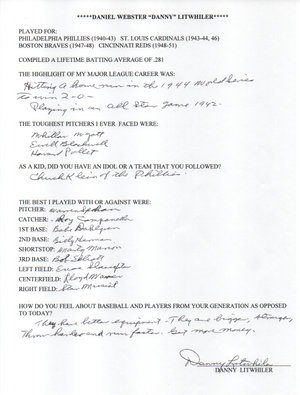 *****DANIEL WEBSTER "DANNY" LITWHILER*****
PLAYED FOR:
PHILADELPHIA PHILLIES (1940-43) ST. LOUIS CARDINALS (1943-44, 46)
BOSTON BRAVES (1947-48) CINCINNATI REDS (1948-51)
COMPILED A LIFETIME BATTING AVERAGE OF .281
THE HIGHLIGHT OF MY MAJOR LEAGUE CAREER WAS:
Hitting A home run in the 1944 World Series
to win 2-0-
Playing in an All Star Game 1942.
THE TOUGHEST PITCHERS I EVER FACED WERE:
Whitlow Wyatt
Ewell Blackwell
Howard Pollet
AS A KID, DID YOU HAVE AN IDOL OR A TEAM THAT YOU FOLLOWED?
Chuck Klein of the Phillies.
THE BEST I PLAYED WITH OR AGAINST WERE:
PITCHER: Warren Spahn
CATCHER: Roy Campanella
1ST BASE: Babe Dahlgren
2ND BASE: Billy Herman
SHORTSTOP: Marty Marion
3RD BASE: Bob Elliott
LEFT FIELD: Enos Slaughter
CENTERFIELD: Lloyd Waner
RIGHT FIELD: Stan Musial
HOW DO YOU FEEL ABOUT BASEBALL AND PLAYERS FROM YOUR GENERATION AS OPPOSED
TO TODAY?
They have better equipment - They are bigger, stronger,
Throw harder and run faster. Get more money.
Danny Litwhiler
DANNY LITWHILER